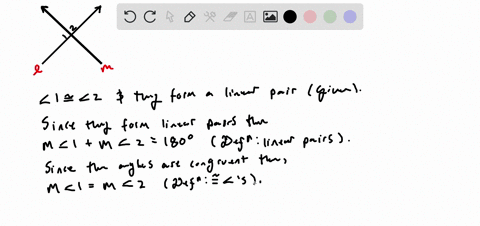 1 2
l m
∠1 ≅ ∠2 & they form a linear pair (Given).
Since they form linear pairs then
m∠1 + m∠2 = 180° (Defⁿ: linear pairs).
Since the angles are congruent then,
m∠1 = m∠2 (Defⁿ: ≅ ∠'s).